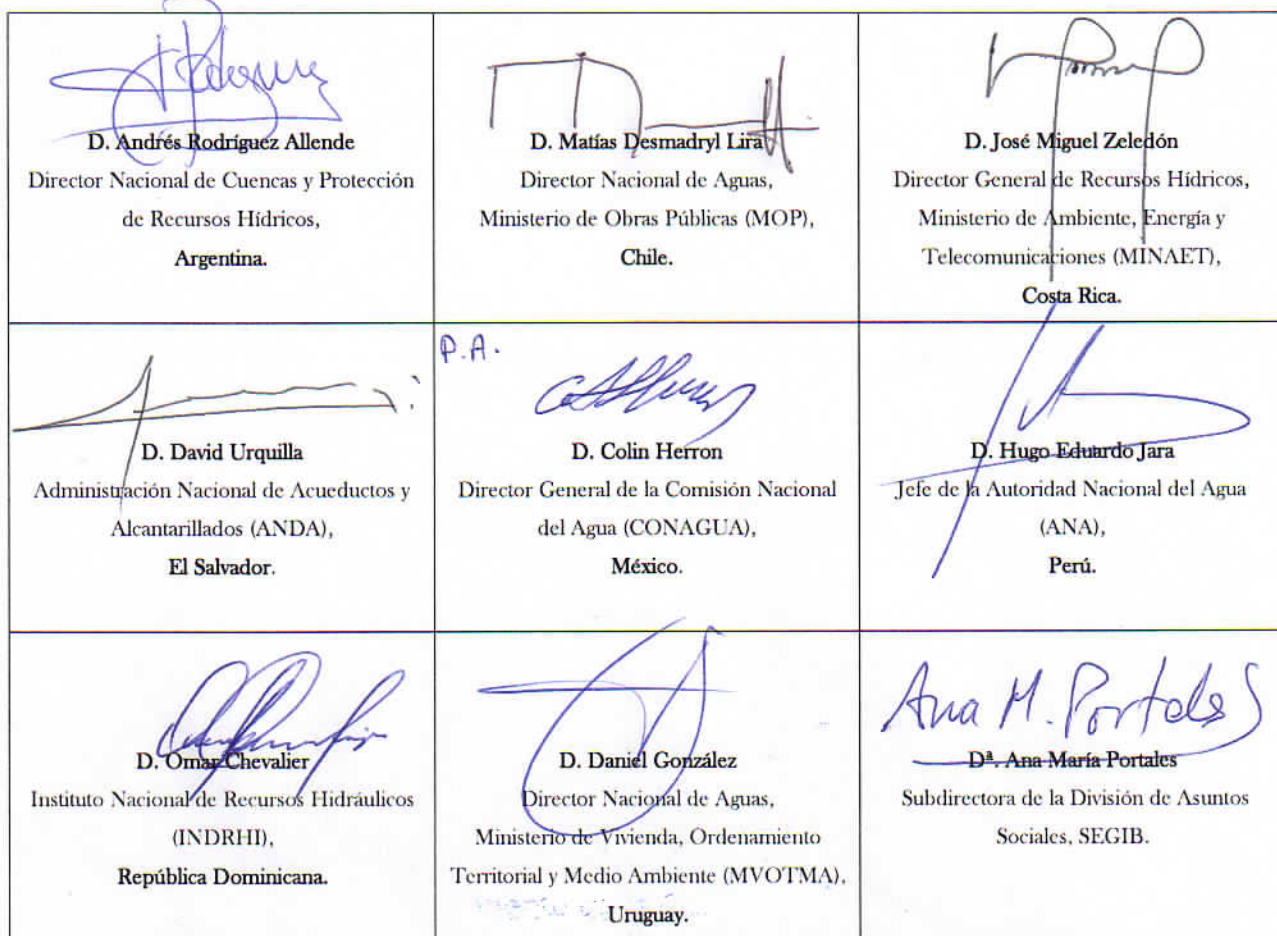 D. Andrés Rodríguez Allende
Director Nacional de Cuencas y Protección
de Recursos Hídricos,
Argentina.
D. Matías Desmadryl Lira
Director Nacional de Aguas,
Ministerio de Obras Públicas (MOP),
Chile.
D. José Miguel Zeledón
Director General de Recursos Hídricos,
Ministerio de Ambiente, Energía y
Telecomunicaciones (MINAET),
Costa Rica.
D. David Urquilla
Administración Nacional de Acueductos y
Alcantarillados (ANDA),
El Salvador.
P.A.
D. Colin Herron
Director General de la Comisión Nacional
del Agua (CONAGUA),
México.
D. Hugo Eduardo Jara
Jefe de la Autoridad Nacional del Agua
(ANA),
Perú.
D. Omar Chevalier
Instituto Nacional de Recursos Hidráulicos
(INDRHI),
República Dominicana.
D. Daniel González
Director Nacional de Aguas,
Ministerio de Vivienda, Ordenamiento
Territorial y Medio Ambiente (MVOTMA),
Uruguay.
Ana M. Portales
Dª. Ana María Portales
Subdirectora de la División de Asuntos
Sociales, SEGIB.